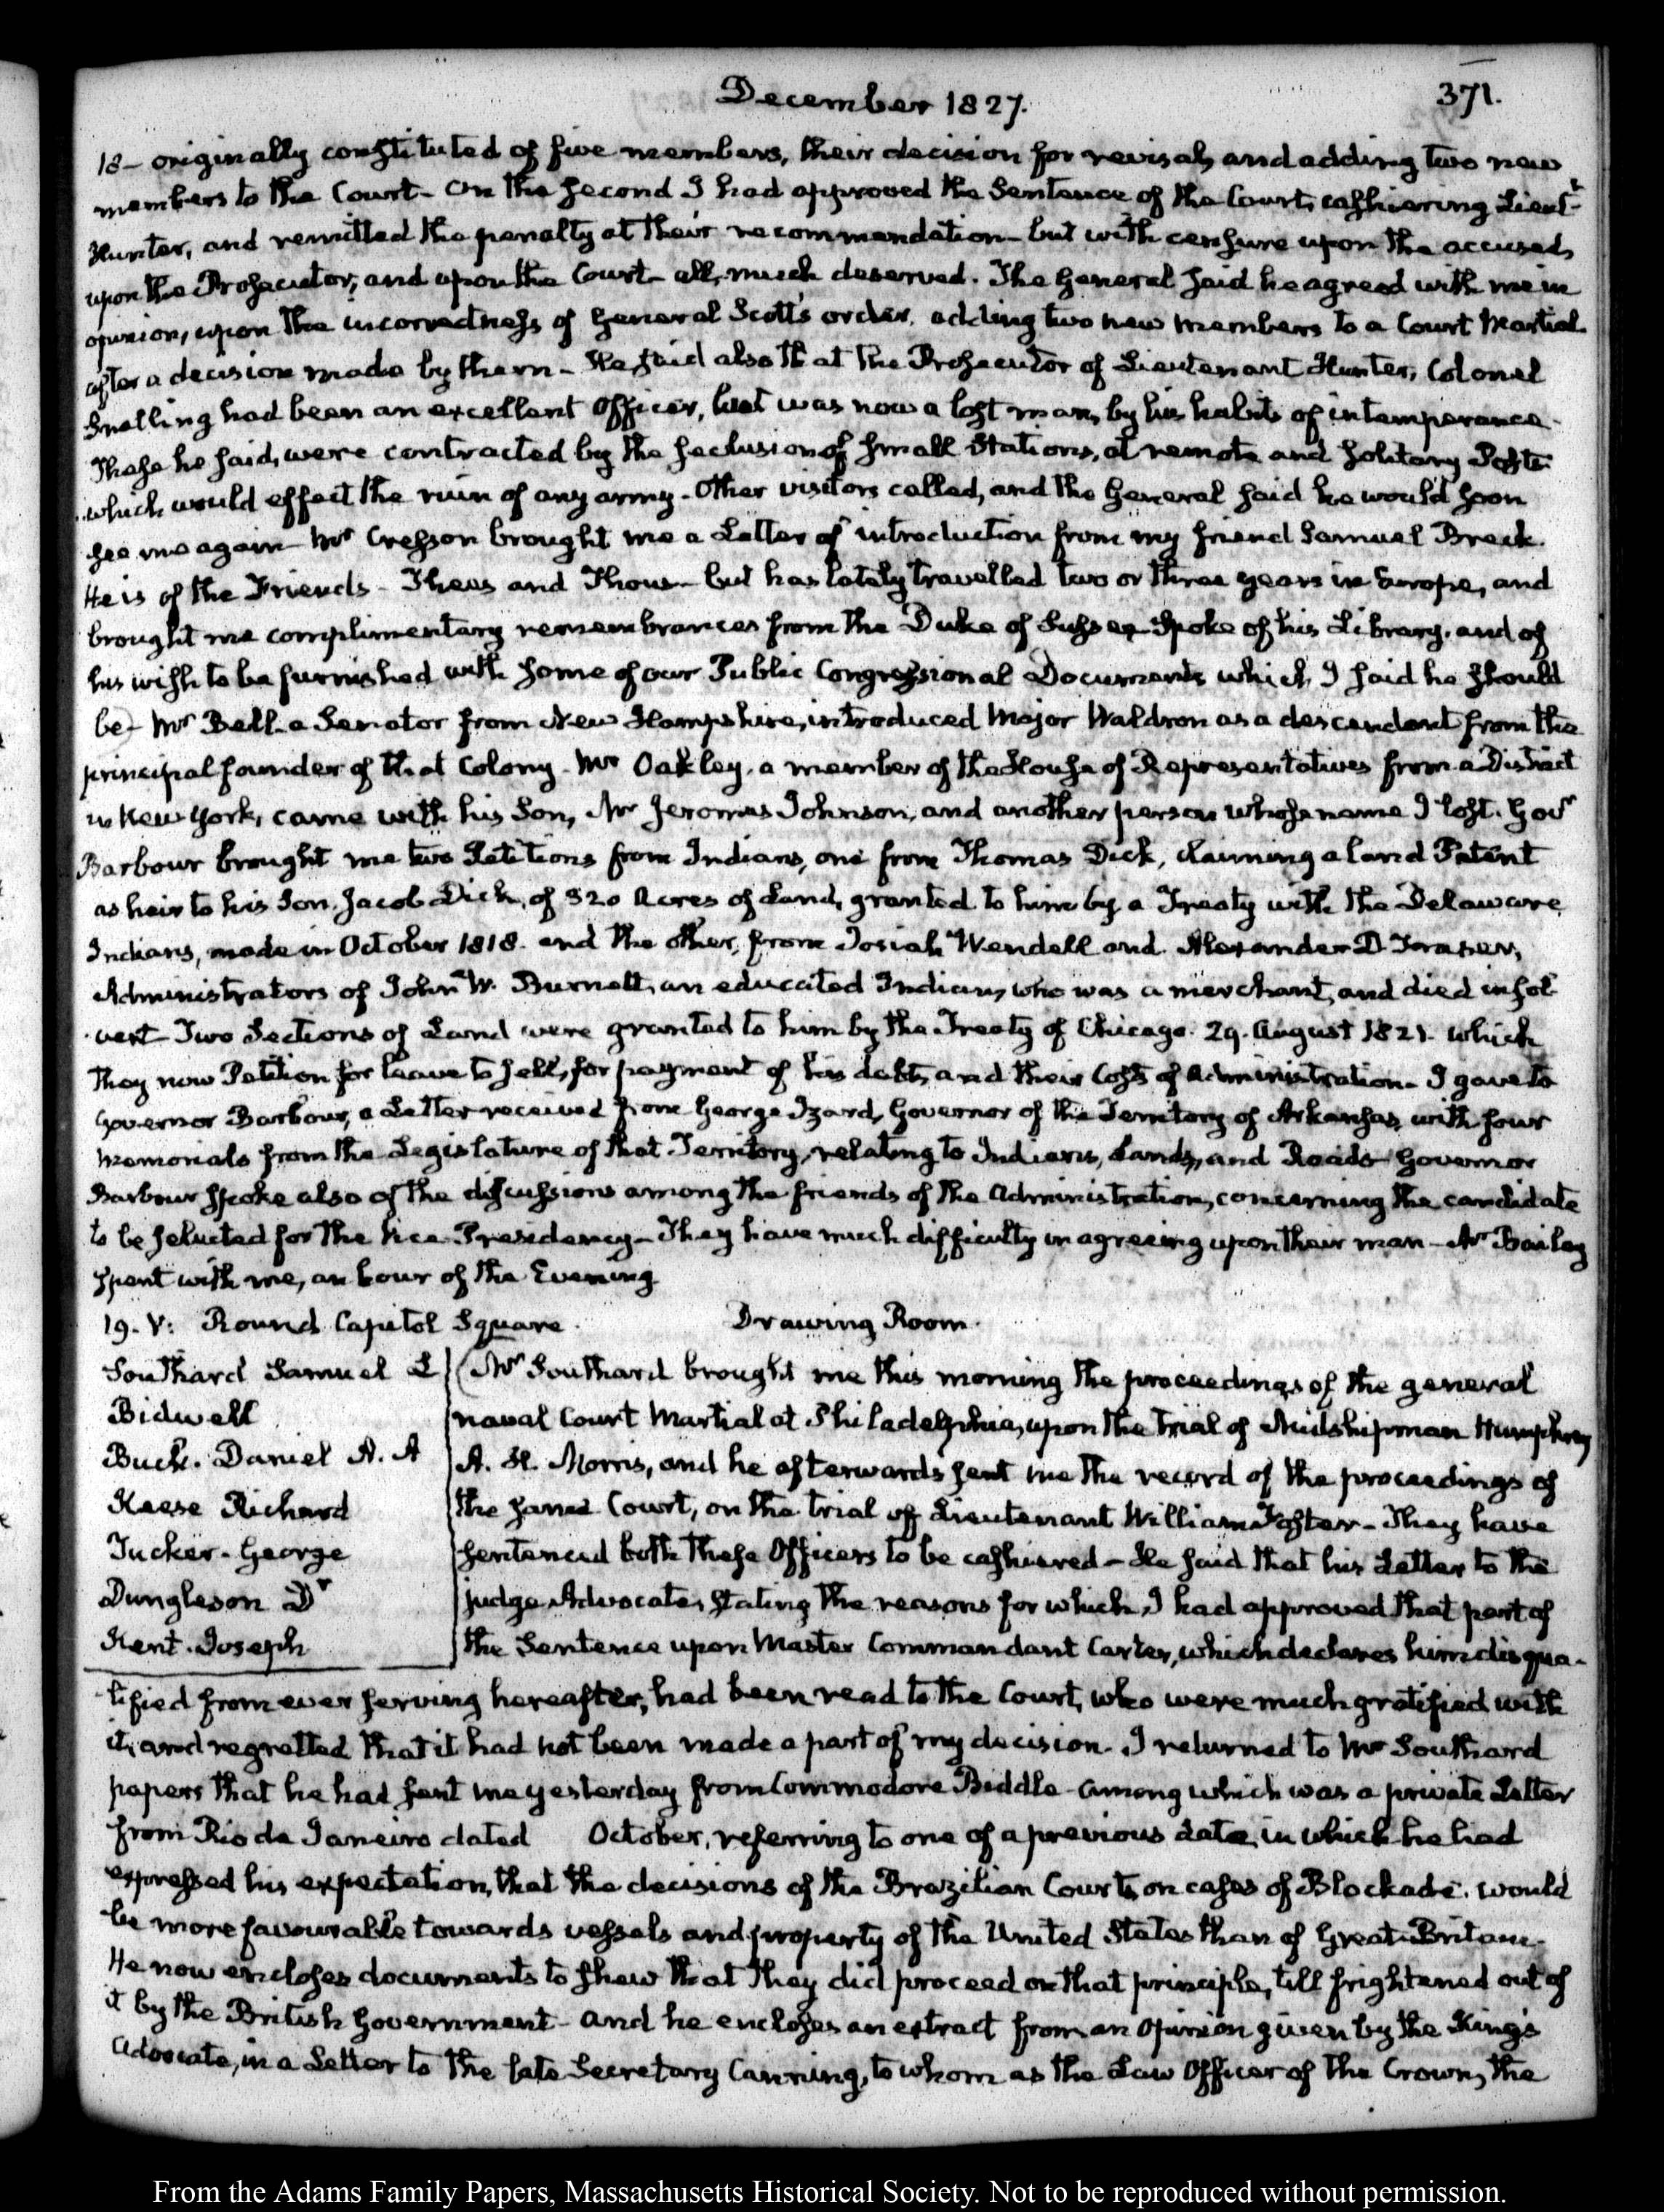 December 1827.
371.
18- originally constituted of five members, their decision for revisal, and adding two new
members to the Court- On the second I had approved the Sentence of the Court, cashiering Lieut.t
Hunter, and remitted the penalty at their recommendation- but with censure upon the accused,
upon the Prosecutor, and upon the Court- all, much deserved. The General said he agreed with me in
opinion, upon the incorrectness of General Scott's order, adding two new members to a Court Martial
after a decision made by them- He said also that the Prosecutor of Lieutenant Hunter, Colonel
Snelling had been an excellent Officer, but was now a lost man, by his habits of intemperance-
These he said, were contracted by the seclusion of small Stations, at remote and solitary Posts
which would effect the ruin of any army- Other visitors called, and the General said he would soon
see me again- Mr Cresson brought me a Letter of introduction from my friend Samuel Breck.
He is of the Friends- Thees and Thous- but has lately travelled two or three years in Europe, and
brought me complimentary remembrances from the Duke of Sussex- Spoke of his Library, and of
his wish to be furnished with some of our Public Congressional Documents which, I said he should
be- Mr Bell a Senator from New Hampshire, introduced Major Waldron as a descendant from the
principal founder of that Colony- Mr Oakley, a member of the House of Representatives from a District
in New York, came with his Son, Mr Jeromus Johnson, and another person whose name I lost. Govr
Barbour brought me two Petitions from Indians, one from Thomas Dick, claiming a land Patent
as heir to his Son, Jacob Dick, of 320 Acres of Land, granted to him by a Treaty with the Delaware
Indians, made in October 1818. and the other, from Josiah Wendell and Alexander D Fraser,
Administrators of John W. Burnett, an educated Indian, who was a merchant, and died insol
vent- Two Sections of Land were granted to him by the Treaty of Chicago. 29. August 1821. which
They now Petition for leave to sell, for payment of his debts, and their Costs of Administration- I gave to
Governor Barbour, a Letter received from George Izard, Governor of the Territory of Arkansas, with four
Memorials from the Legislature of that Territory, relating to Indians, Lands, and Roads- Governor
Barbour spoke also of the discussions among the friends of the Administration, concerning the candidate
to be selected for the Vice Presidency- They have much difficulty in agreeing upon their man- Mr Bailey
spent with me, an hour of the Evening.
19. V: Round Capitol Square. Drawing Room.
Southard Samuel L
Bidwell
Buck. Daniel A. A
Keese Richard
Tucker- George
Dunglison Dr
Kent. Joseph
Mr Southard brought me this morning the proceedings of the general
naval Court Martial at Philadelphia, upon the trial of Midshipman Humphrey
A. H. Morris, and he afterwards sent me the record of the proceedings of
the same Court, on the trial of Lieutenant William Foster- They have
sentenced both these Officers to be cashiered- He said that his Letter to the
judge Advocate, stating the reasons for which, I had approved that part of
the Sentence upon Master Commandant Carter, which declares him disqua-
lified from ever serving hereafter, had been read to the Court, who were much gratified with
it, and regretted that it had not been made a part of my decision. I returned to Mr Southard
papers that he had sent me yesterday from Commodore Biddle- among which was a private Letter
from Rio de Janeiro dated October, referring to one of a previous date, in which he had
expressed his expectation, that the decisions of the Brazilian Courts, on cases of Blockade, would
be more favourable towards vessels and property of the United States than of Great-Britain-
He now encloses documents to shew that they did proceed on that principle, till frightened out of
it by the British Government- and he encloses an extract from an Opinion given by the King's
Advocate, in a Letter to the late Secretary Canning, to whom as the Law Officer of the Crown, the
From the Adams Family Papers, Massachusetts Historical Society. Not to be reproduced without permission.